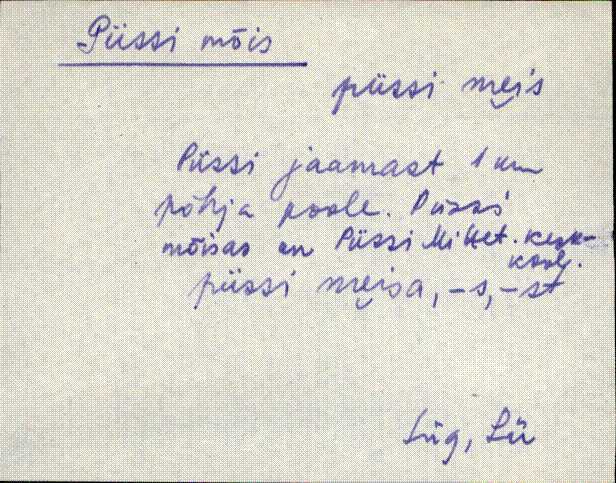 Püssi mõis
püssi męis
Püssi jaamast 1 km
põhja poole. Püssi
mõisas on Püssi Mittet. kesk-
kool.
püssi męisa, -s, -st
Lüg, Lü